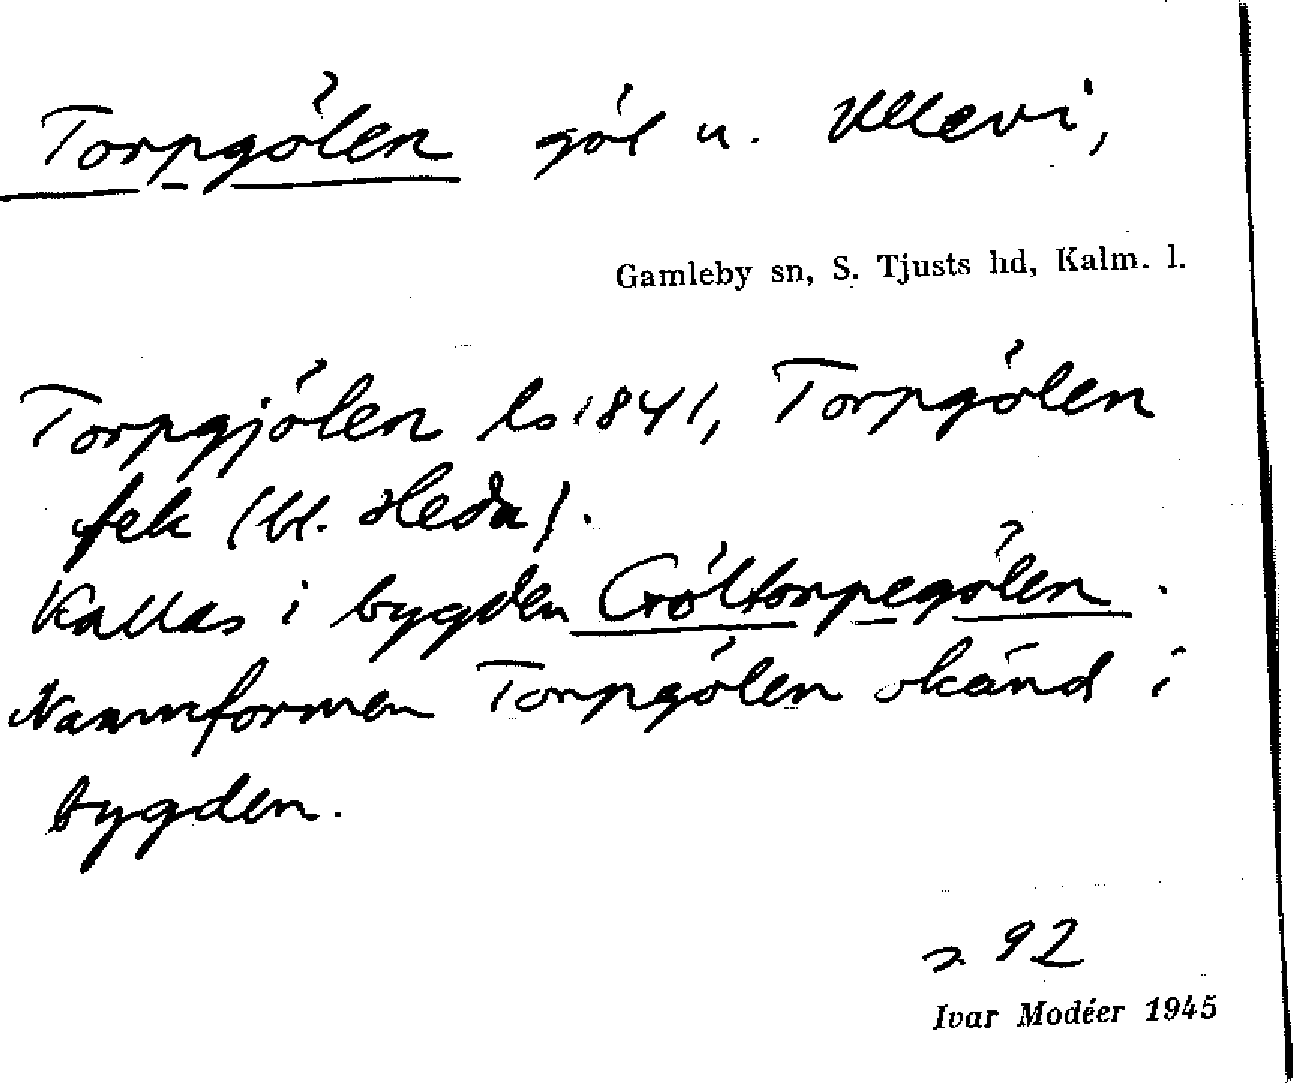 Torpgölen göl u. Ullevi,
Gamleby sn, S. Tjusts hd, Kalm. l.
Torpgjölen ls 1841, Torpgölen
fek (bl. Heda).
Kallas i bygden Gröltorpegölen.
Namnformen Torpgölen okänd i
bygden.
s. 92
Ivar Modéer 1945